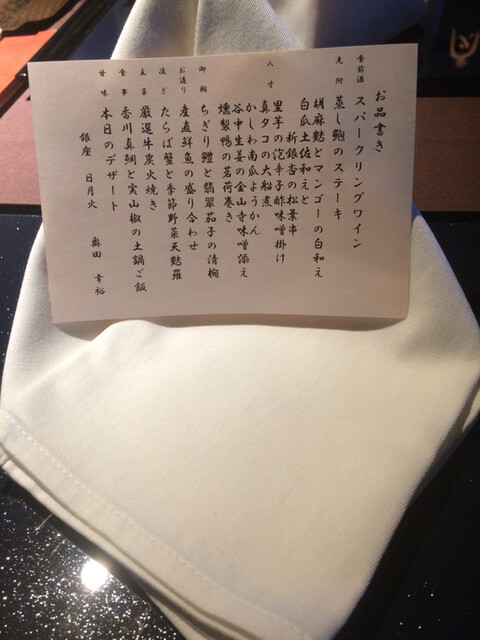 お品書き
食前酒 スパークリングワイン
先附 蒸し鮑のステーキ
胡麻麩とマンゴーの白和え
白瓜土佐和えと
新銀杏の松葉串
八寸 里芋の泡辛子酢味噌掛け
真タコの大船煮
かしわ南瓜ようかん
谷中生姜の金山寺味噌添え
燻製鴨の茗荷巻き
御椀 ちぎり鱧と翡翠茄子の清椀
お造り 産直鮮魚の盛り合わせ
凌ぎ たらば蟹と季節野菜天麩羅
主菜 厳選牛炭火焼き
食事 香川真鯛と実山椒の土鍋ご飯
甘味 本日のデザート
銀座 日月火 奥田 幸裕